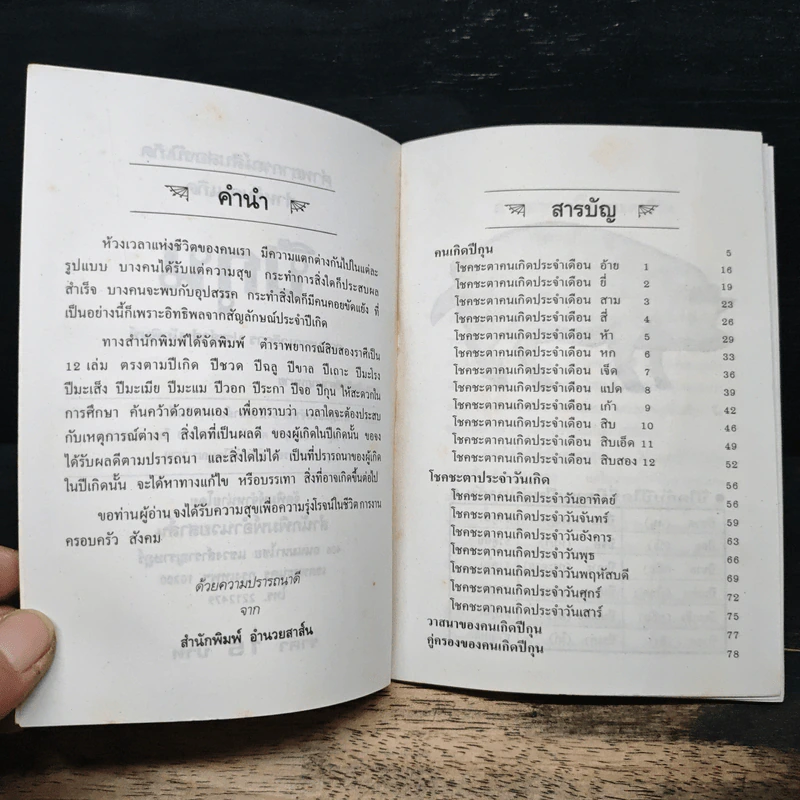 คำนำ
ห้วงเวลาแห่งชีวิตของคนเรา มีความแตกต่างกันไปในแต่ละ
รูปแบบ บางคนได้รับแต่ความสุข กระทำการสิ่งใดก็ประสบผล
สำเร็จ บางคนจะพบกับอุปสรรค กระทำสิ่งใดก็มีคนคอยขัดแย้ง ที่
เป็นอย่างนี้ก็เพราะอิทธิพลจากสัญลักษณ์ประจำปีเกิด
ทางสำนักพิมพ์ได้จัดพิมพ์ ตำราพยากรณ์สิบสองราศีเป็น
12 เล่ม ตรงตามปีเกิด ปีชวด ปีฉลู ปีขาล ปีเถาะ ปีมะโรง
ปีมะเส็ง ปีมะเมีย ปีมะแม ปีวอก ปีระกา ปีจอ ปีกุน ให้สะดวกใน
การศึกษา ค้นคว้าด้วยตนเอง เพื่อทราบว่า เวลาใดจะต้องประสบ
กับเหตุการณ์ต่างๆ สิ่งใดที่เป็นผลดี ของผู้เกิดในปีเกิดนั้น ขอจง
ได้รับผลดีตามปรารถนา และสิ่งใดไม่ได้ เป็นที่ปรารถนาของผู้เกิด
ในปีเกิดนั้น จะได้หาทางแก้ไข หรือบรรเทา สิ่งที่อาจเกิดขึ้นต่อไป
ขอท่านผู้อ่าน จงได้รับความสุขเพื่อความรุ่งโรจน์ในชีวิต การงาน
ครอบครัว สังคม
ด้วยความปรารถนาดี
จาก
สำนักพิมพ์ อำนวยสาส์น
สารบัญ
คนเกิดปีกุน 5
โชคชะตาคนเกิดประจำเดือน อ้าย 1 16
โชคชะตาคนเกิดประจำเดือน ยี่ 2 19
โชคชะตาคนเกิดประจำเดือน สาม 3 23
โชคชะตาคนเกิดประจำเดือน สี่ 4 26
โชคชะตาคนเกิดประจำเดือน ห้า 5 29
โชคชะตาคนเกิดประจำเดือน หก 6 33
โชคชะตาคนเกิดประจำเดือน เจ็ด 7 36
โชคชะตาคนเกิดประจำเดือน แปด 8 39
โชคชะตาคนเกิดประจำเดือน เก้า 9 42
โชคชะตาคนเกิดประจำเดือน สิบ 10 46
โชคชะตาคนเกิดประจำเดือน สิบเอ็ด 11 49
โชคชะตาคนเกิดประจำเดือน สิบสอง 12 52
โชคชะตาประจำวันเกิด 56
โชคชะตาคนเกิดประจำวันอาทิตย์ 56
โชคชะตาคนเกิดประจำวันจันทร์ 59
โชคชะตาคนเกิดประจำวันอังคาร 63
โชคชะตาคนเกิดประจำวันพุธ 66
โชคชะตาคนเกิดประจำวันพฤหัสบดี 69
โชคชะตาคนเกิดประจำวันศุกร์ 72
โชคชะตาคนเกิดประจำวันเสาร์ 75
วาสนาของคนเกิดปีกุน 77
คู่ครองของคนเกิดปีกุน 78